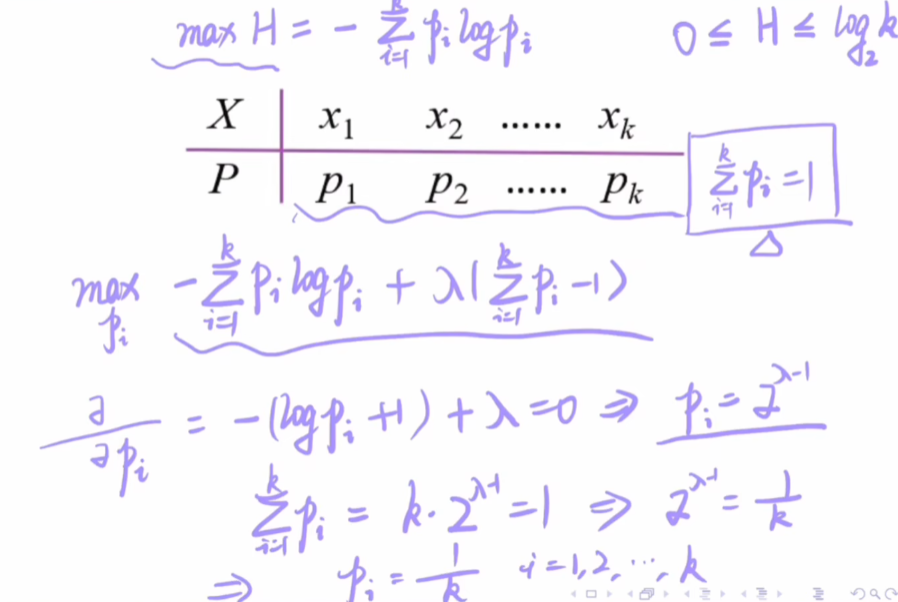 max H = - ∑_{i=1}^{k} p_i log p_i    0 ≤ H ≤ log_2 k
X | x_1 x_2 ...... x_k
P | p_1 p_2 ...... p_k    ∑_{i=1}^{k} p_i = 1
Δ
max_{p_i} - ∑_{i=1}^{k} p_i log p_i + λ(∑_{i=1}^{k} p_i - 1)
∂/∂p_i = -(log p_i + 1) + λ = 0 ⇒ p_i = 2^{λ-1}
∑_{i=1}^{k} p_i = k · 2^{λ-1} = 1 ⇒ 2^{λ-1} = 1/k
⇒ p_i = 1/k    i = 1, 2, ..., k